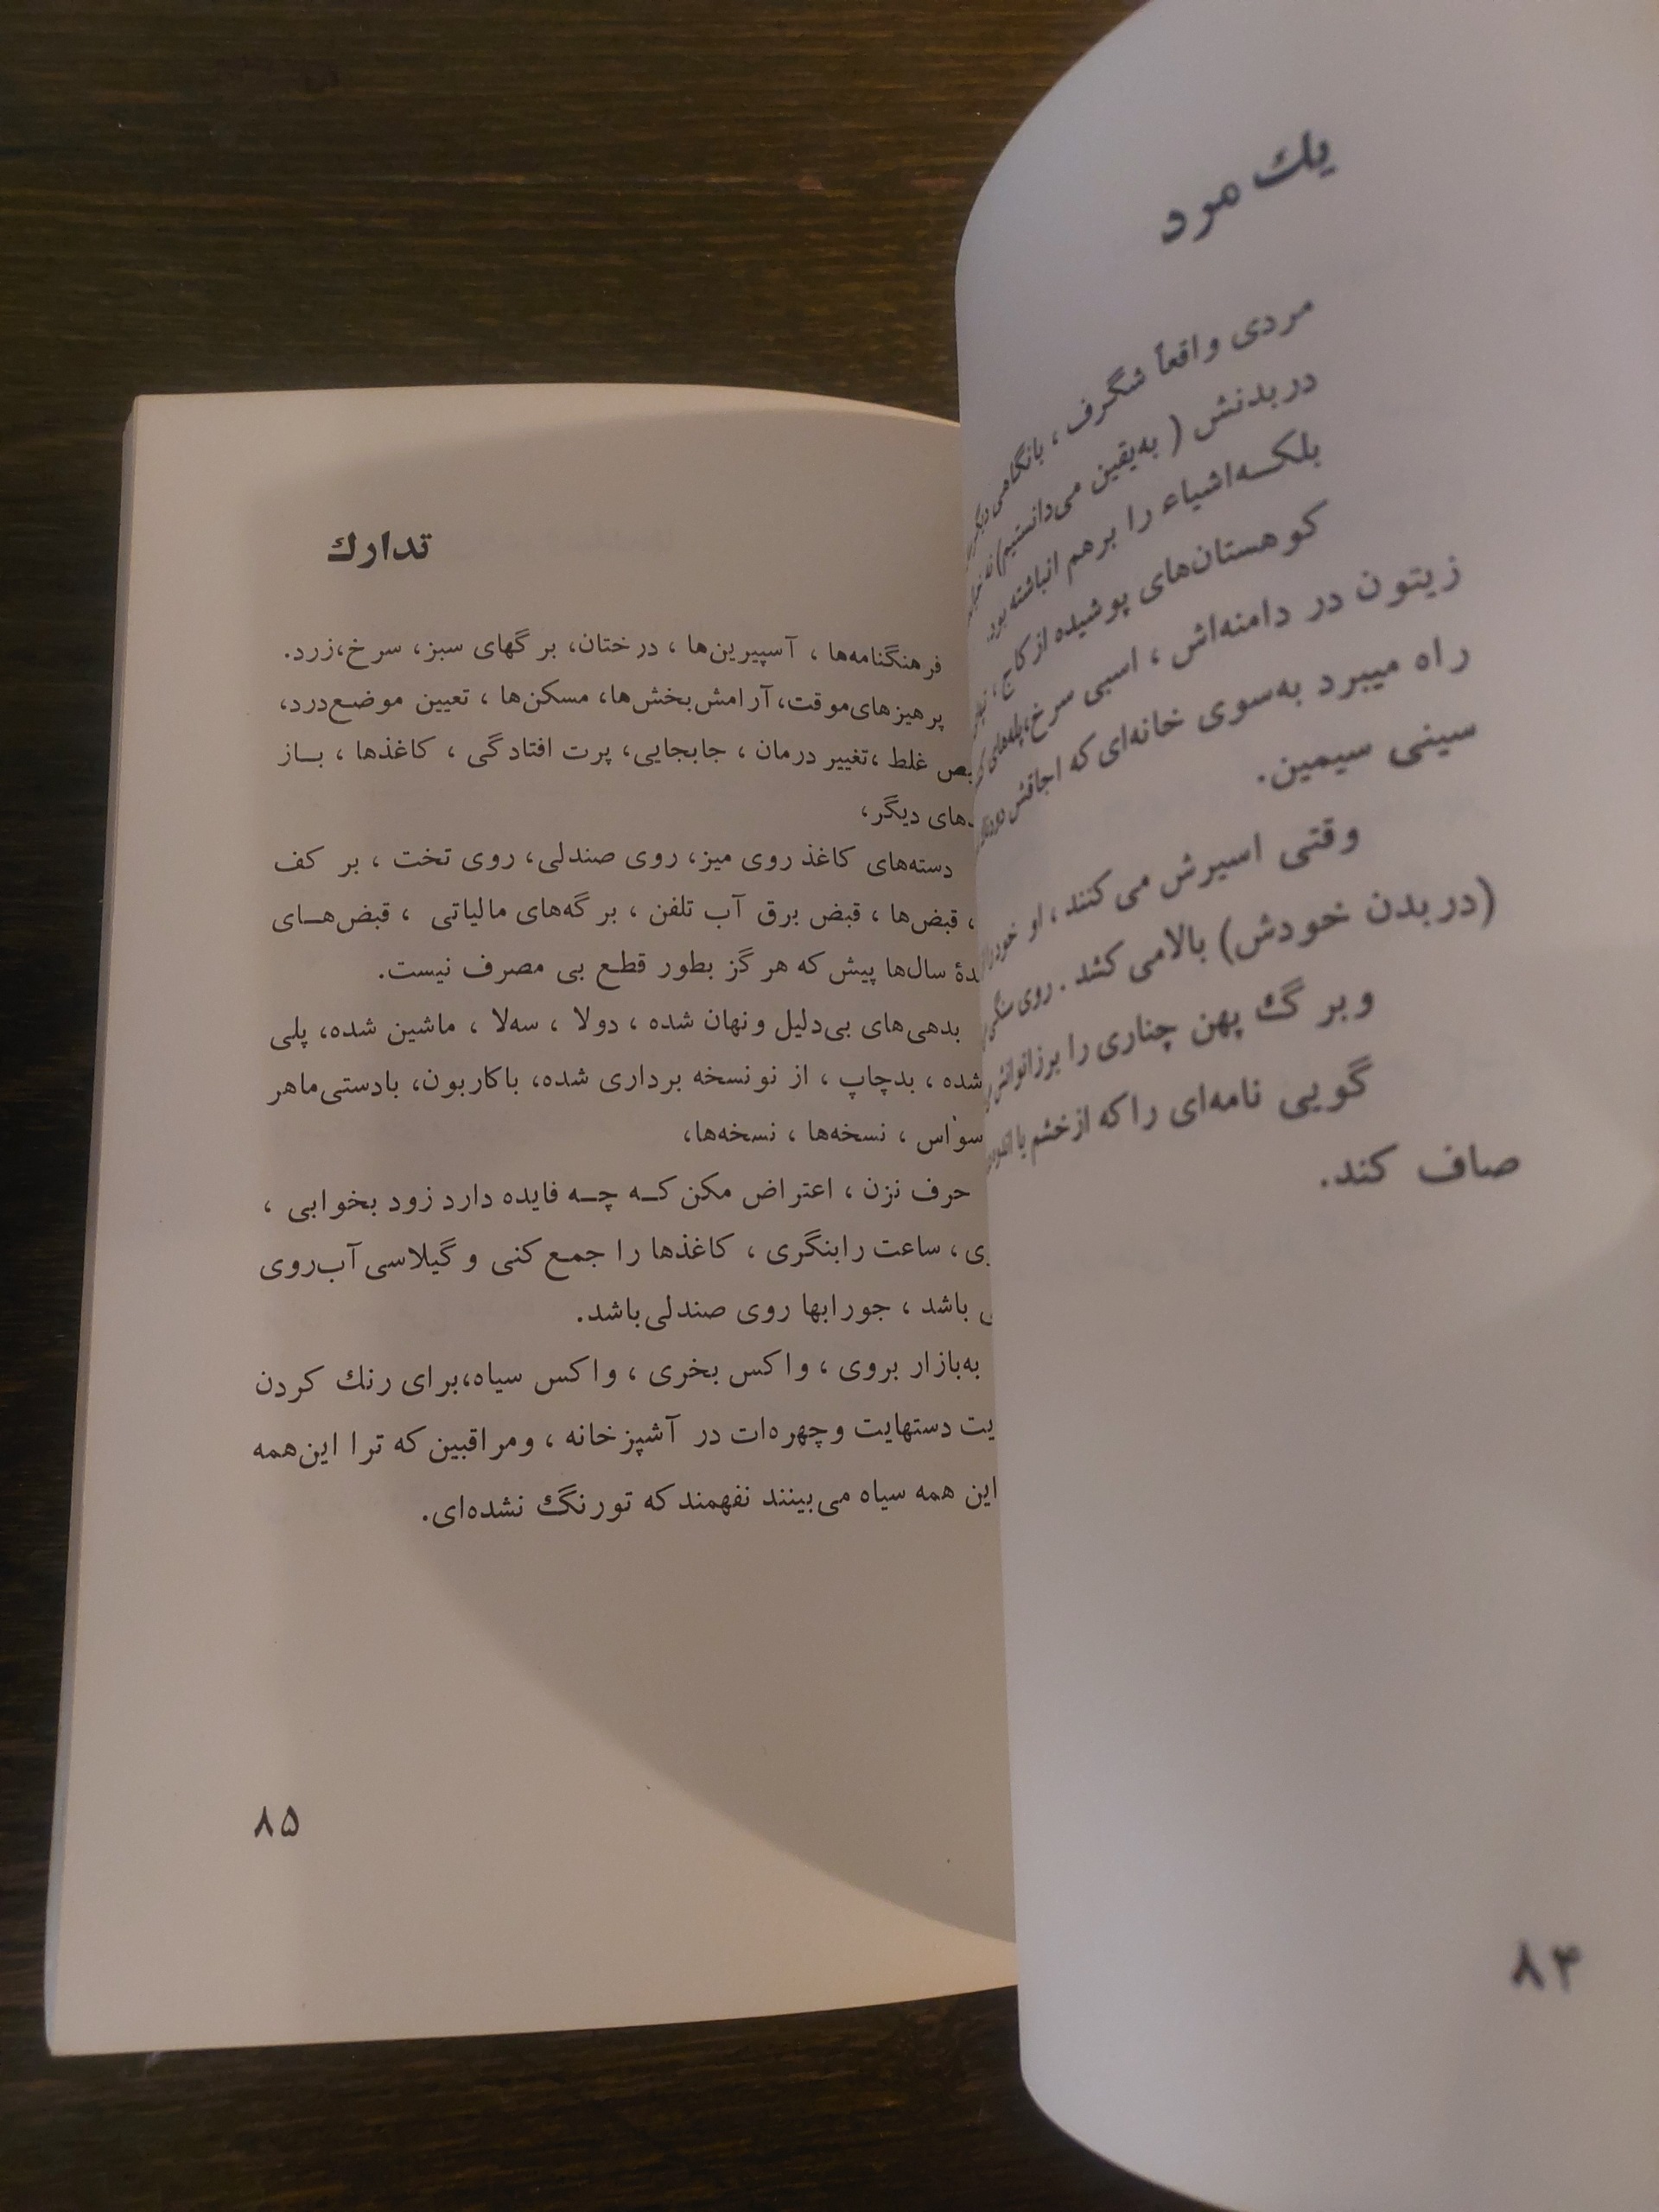 یك مرد
مردی واقعاً شگرف ، بانگاهی
در بدنش ( به‌یقین می‌دانستیم) نه
بلکه‌اشیاء را برهم انباشته بود.
کوهستان‌های پوشیده از کاج ،
زیتون در دامنه‌اش ، اسبی سرخ،
راه میبرد به‌سوی خانه‌ای که اجاقش
سینی سیمین.
وقتی اسیرش می‌کنند ، او
(در بدن خودش) بالامی کشد . روی
وبرگ پهن چناری را برزانوانش
گویی نامه‌ای راکه ازخشم با
صاف کند.
۸۴
تدارك
فرهنگنامه‌ها ، آسپیرین‌ها ، درختان، برگهای سبز، سرخ،زرد.
پرهیزهای‌موقت، آرامش‌بخش‌ها، مسکن‌ها ، تعیین موضع‌درد،
غلط ،تغییر درمان ، جابجایی، پرت افتادگی ، کاغذها ، باز
دیگر،
دسته‌های کاغذ روی میز، روی صندلی، روی تخت ، بر کف
، قبض‌ها ، قبض برق آب تلفن ، برگه‌های مالیاتی ، قبض‌های
سال‌ها پیش که هرگز بطور قطع بی مصرف نیست.
بدهی‌های بی‌دلیل ونهان شده ، دولا ، سه‌لا ، ماشین شده، پلی
شده ، بدچاپ ، از نو نسخه برداری شده، باکاربون، بادستی‌ماهر
، نسخه‌ها ، نسخه‌ها،
حرف نزن ، اعتراض مکن که چه فایده دارد زود بخوابی ،
، ساعت رابنگری ، کاغذها را جمع کنی و گیلاسی آب‌روی
باشد ، جورابها روی صندلی‌باشد.
به‌بازار بروی ، واکس بخری ، واکس سیاه،برای رنك کردن
دستهایت وچهره‌ات در آشپزخانه ، ومراقبین که ترا این‌همه
این همه سیاه می‌بینند نفهمند که تورنگ نشده‌ای.
۸۵